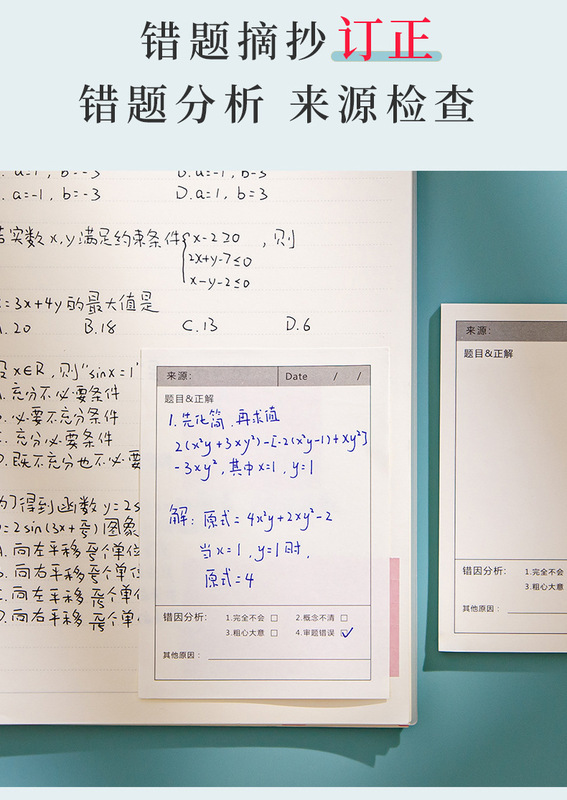 错题摘抄订正
错题分析 来源检查
. a=1, b=-3
B. a=-1, b=3
. a=-1, b=-3
D. a=1, b=3
若实数x,y满足约束条件
x-2≥0
2x+y-7≤0
x-y-2≤0
,则
=3x+4y的最大值是
.20 B.18 C.13 D.6
设x∈R,则"sinx=1"
.充分不必要条件
.必要不充分条件
.充分必要条件
D.既不充分也不必要
为了得到函数y=2s
=2sin(3x+π/5)图象
.向左平移π/5个单位
.向右平移π/5个单位
.向左平移π/15个单位
D.向右平移π/15个单位
来源:
Date / /
题目&正解
1.先化简,再求值
2(x²y+3xy²)-[-2(x²y-1)+xy²]
-3xy²,其中x=1,y=1
解:原式=4x²y+2xy²-2
当x=1,y=1时,
原式=4
错因分析: 1.完全不会 □ 2.概念不清 □
3.粗心大意 □ 4.审题错误 ☑
其他原因:
来源:
题目&正解
错因分析: 1.完全不会
3.粗心大意
其他原因: